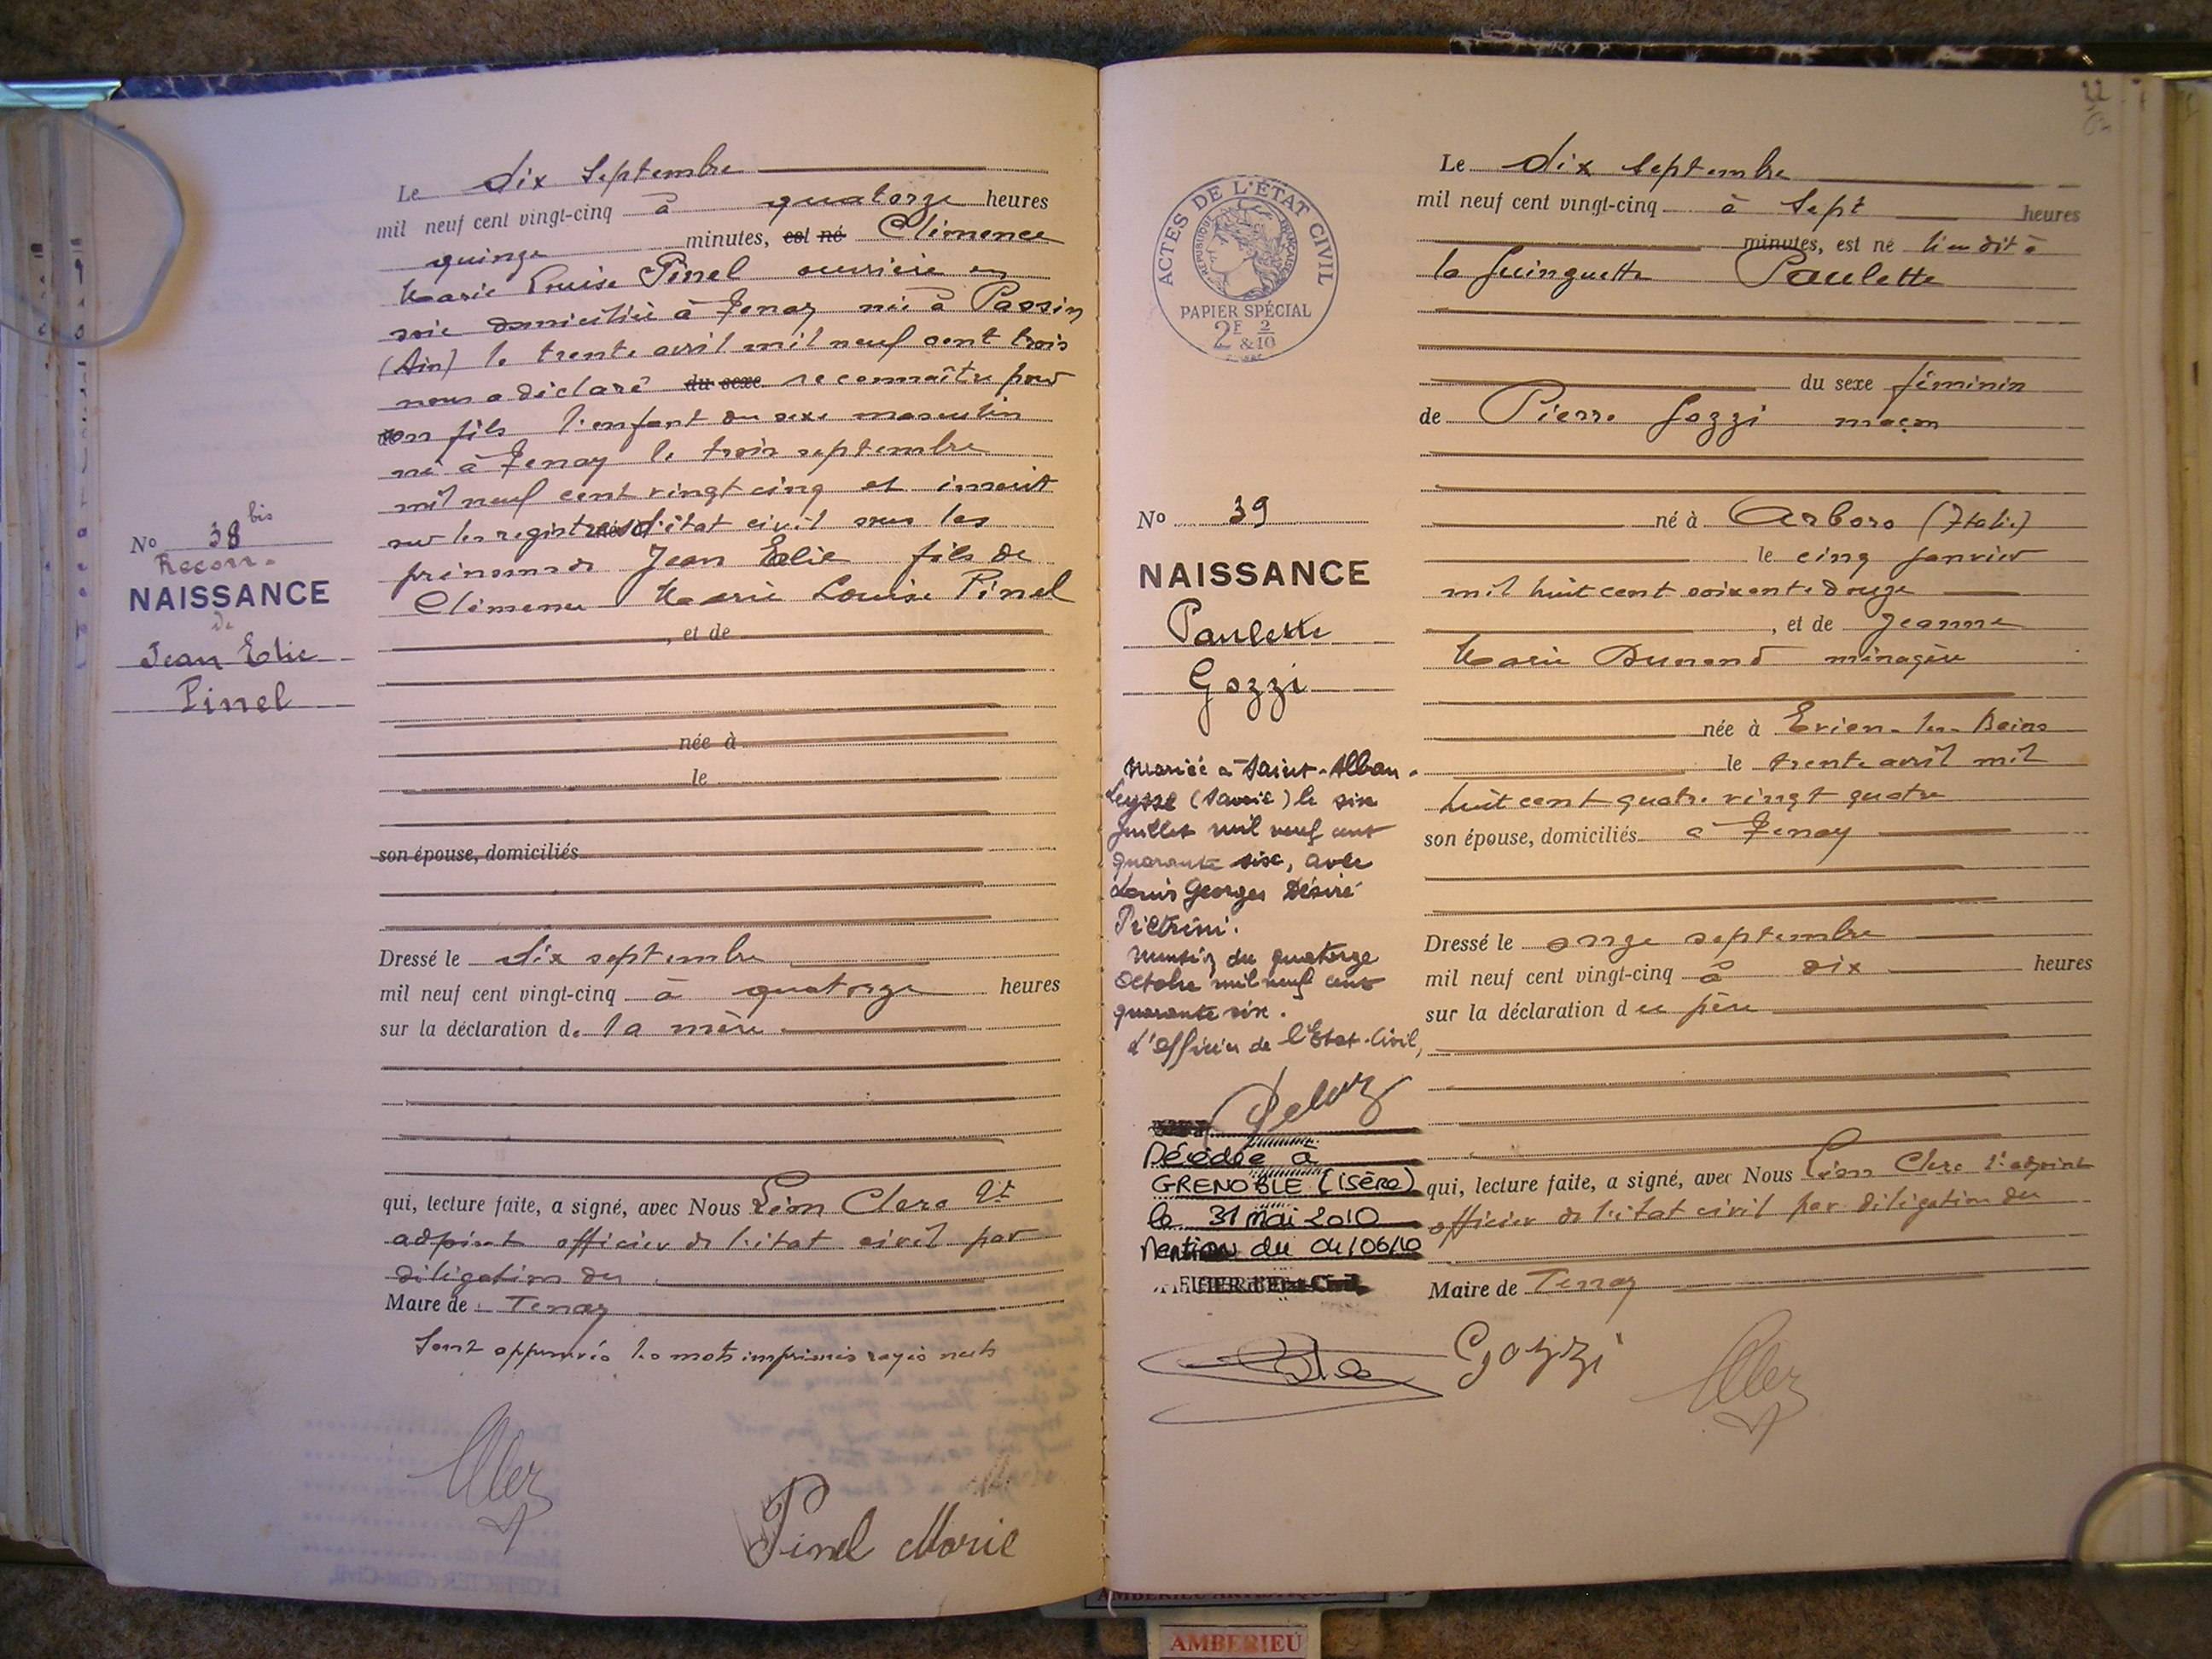 Le dix Septembre
mil neuf cent vingt-cinq à quatorze heures
quinze minutes, est né Clémence
Marie Louise Pinel ouvrière en
soie domiciliée à Tenay née à Passin
(Ain) le trente avril mil neuf cent trois
nous a déclaré du sexe reconnaître pour
son fils l'enfant du sexe masculin
né à Tenay le trois septembre
mil neuf cent vingt cinq et inscrit
sur les registres d'état civil sous les
prénoms de Jean Elie fils de
Clémence Marie Louise Pinel
, et de
née à
le
son épouse, domiciliés
Dressé le dix septembre
mil neuf cent vingt-cinq à quatorze heures
sur la déclaration de la mère
qui, lecture faite, a signé, avec Nous Léon Clerc
adjoint officier de l'état civil par
délégation du
Maire de Tenay
Sont approuvés les mots imprimés rayés nuls
Pinel Marie
No 38 bis
Reconn.
NAISSANCE
de
Jean Elie
Pinel
22
ACTES DE L'ÉTAT CIVIL
REPUBLIQUE FRANÇAISE
PAPIER SPÉCIAL
2F 2
&10
Le dix Septembre
mil neuf cent vingt-cinq à Sept heures
minutes, est né lieu dit à
la Guinguette Paulette
du sexe féminin
de Pierre Gozzi maçon
né à Arboro (Italie)
le cinq Janvier
mil huit cent soixante douze
, et de Jeanne
Marie Dunand ménagère
née à Evian-les-Bains
le trente avril mil
huit cent quatre vingt quatre
son épouse, domiciliés à Tenay
Dressé le onze septembre
mil neuf cent vingt-cinq à dix heures
sur la déclaration du père
qui, lecture faite, a signé, avec Nous Léon Clerc adjoint
officier de l'état civil par délégation du
Maire de Tenay
Gozzi
No 39
NAISSANCE
Paulette
Gozzi
Mariée à Saint-Alban-
Leysse (Savoie) le six
Juillet mil neuf cent
quarante six, avec
Louis Georges Désiré
Pietrini.
Mention du quatorze
Octobre mil neuf cent
quarante six.
L'Officier de l'Etat-Civil,
Décédée à
GRENOBLE (ISère)
le 31 Mai 2010
Mention du 04/06/10
AMBERIEU